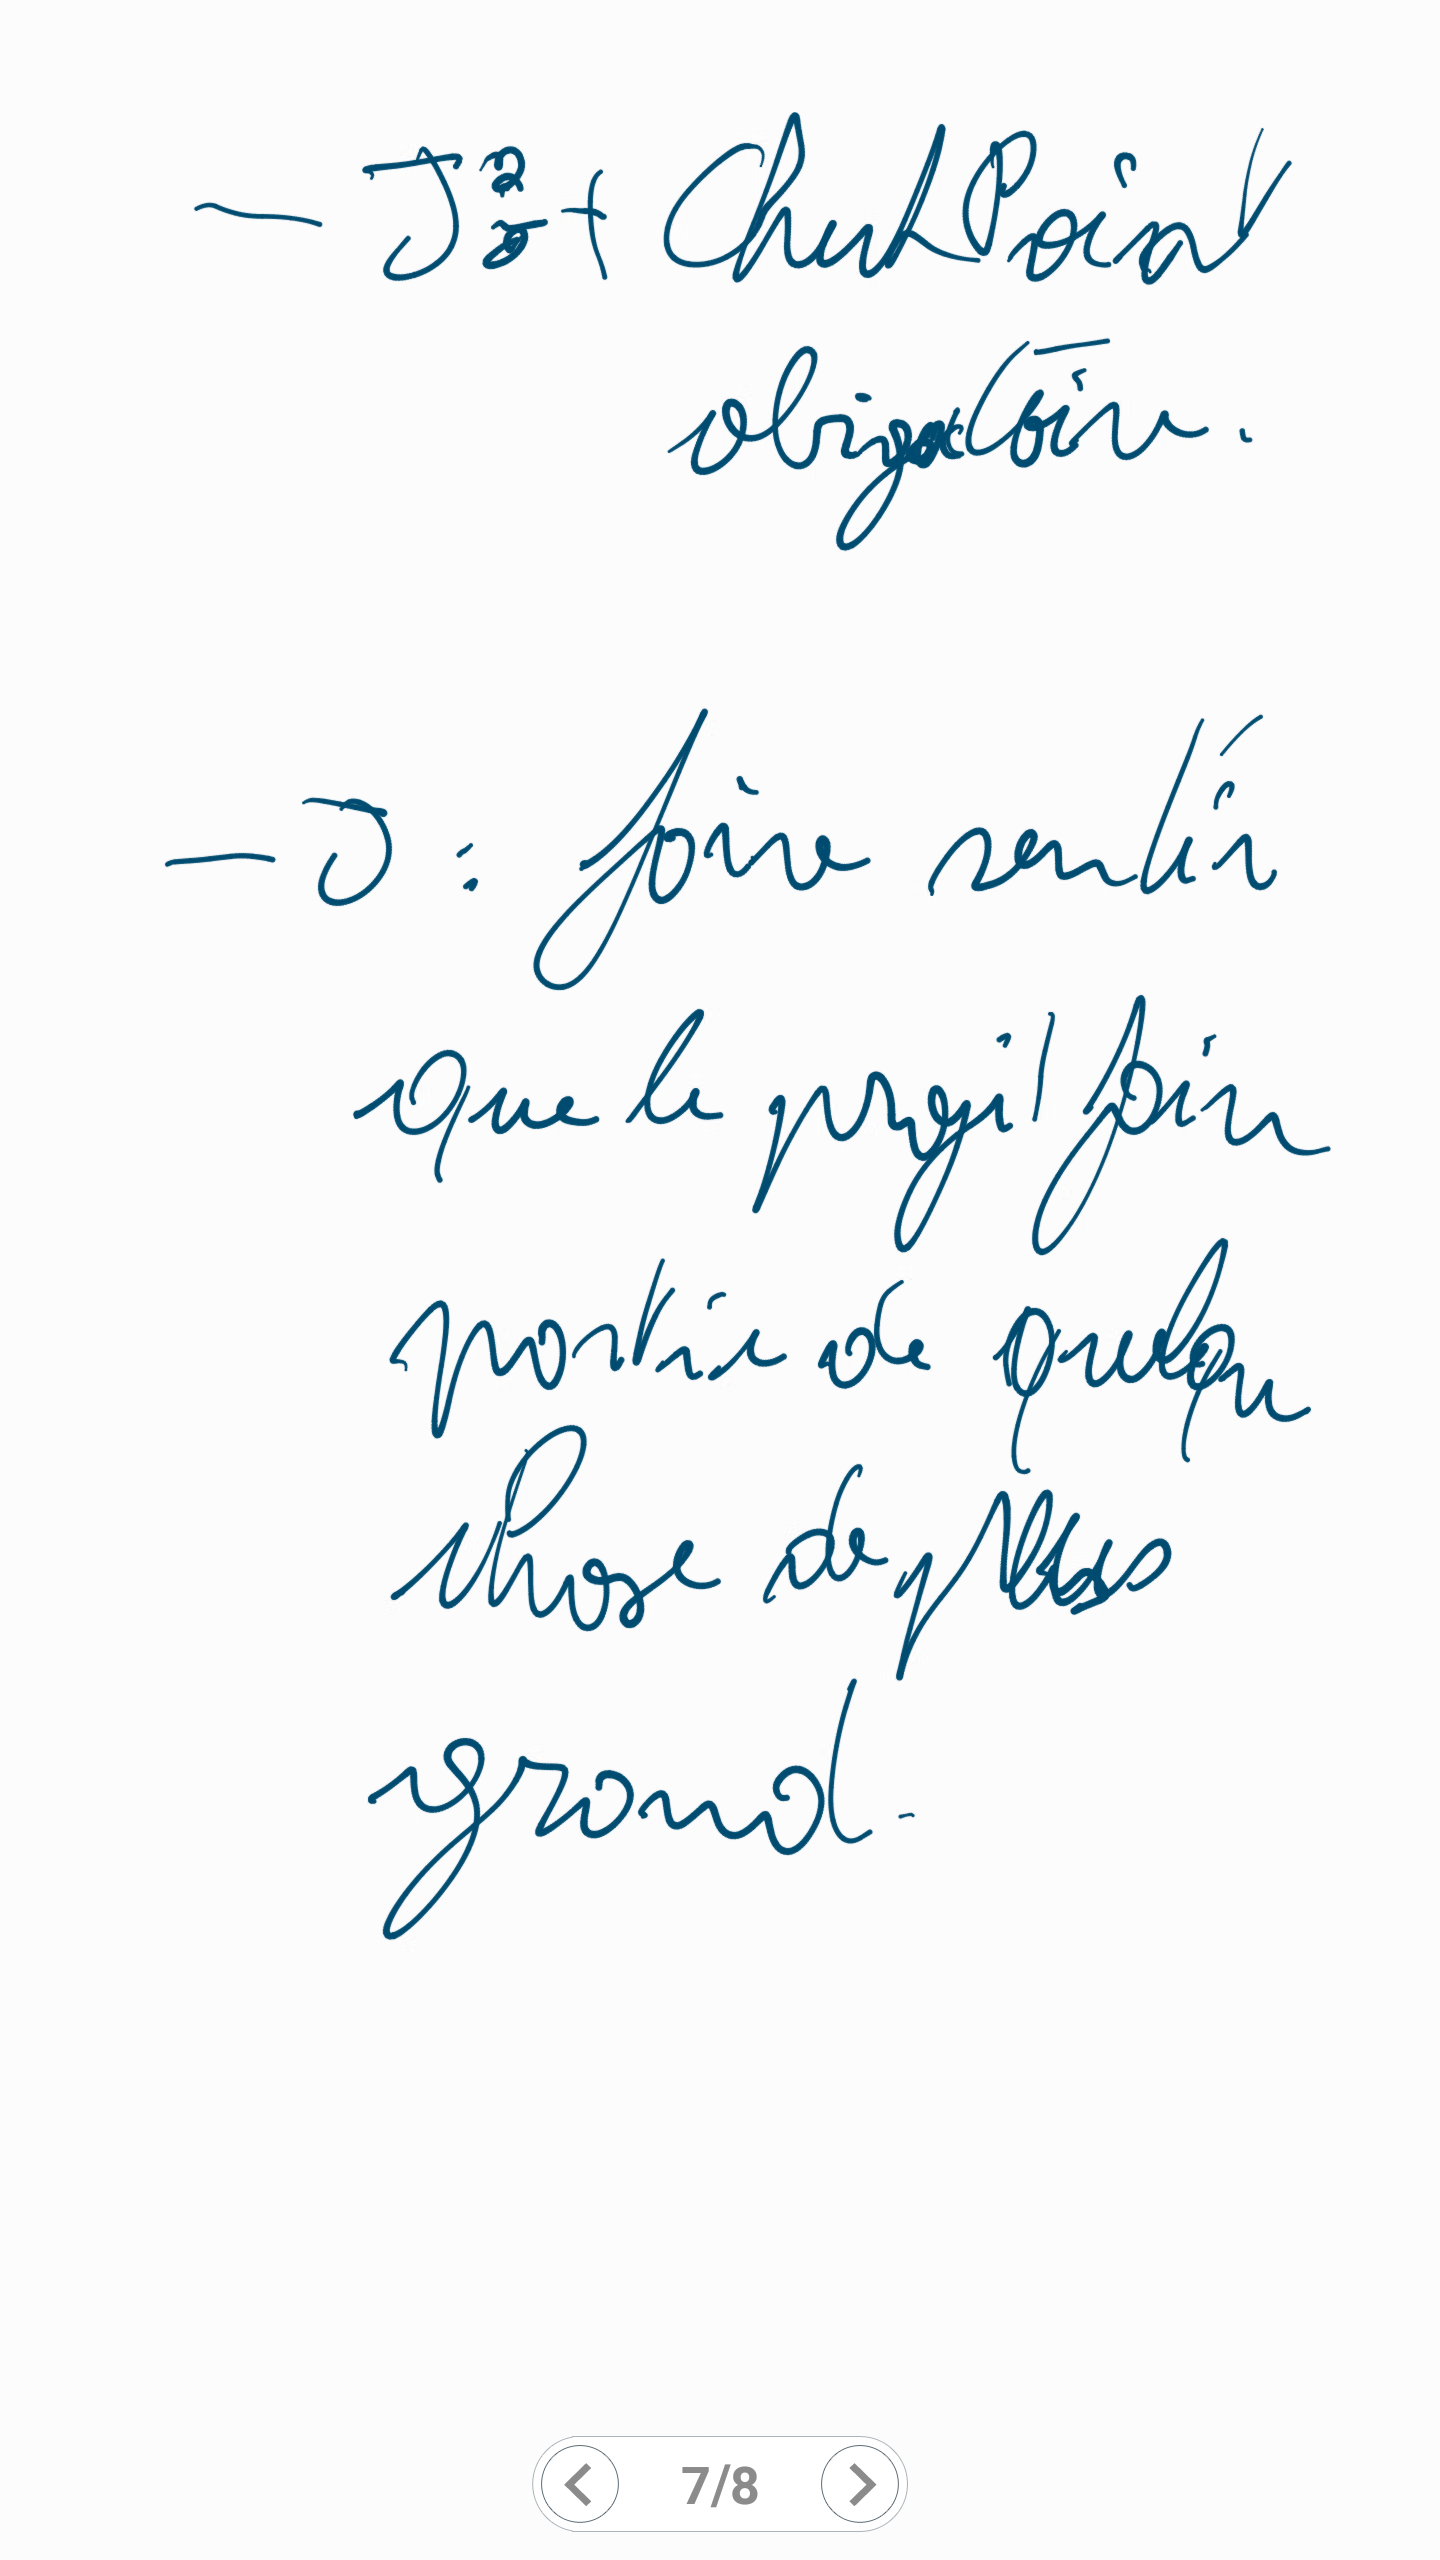 — J2+ CheckPoint
obligatoire.
— J : faire sentir
que le projet faire
partie de quelque
chose de plus
grand.
7/8